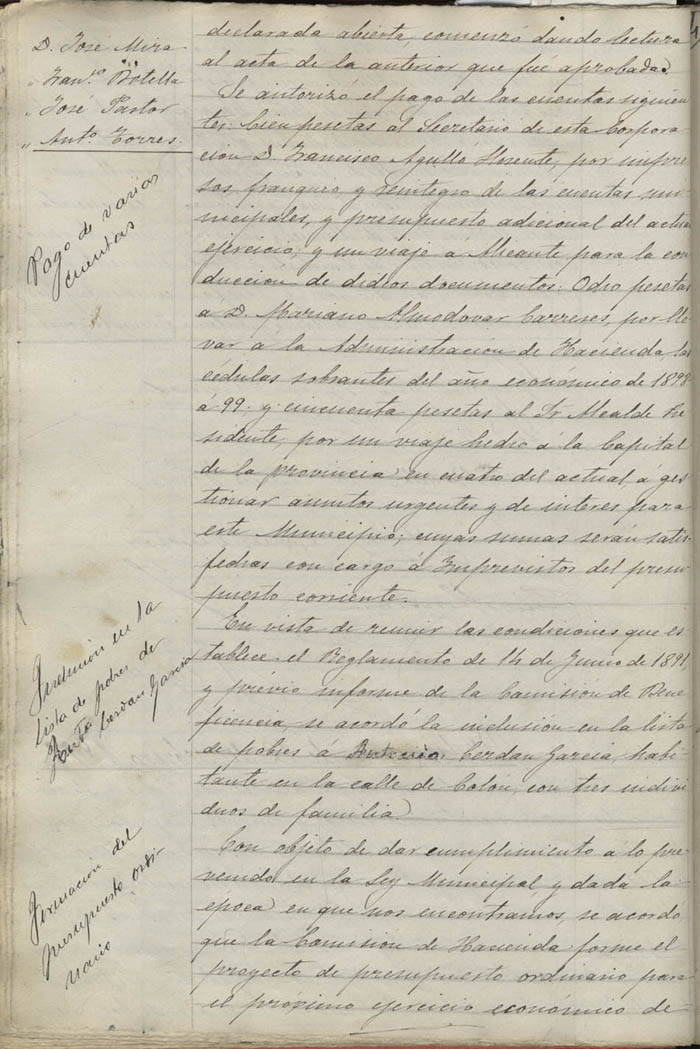 D. José Mira
" Fran.co Botella
" José Pastor
" Anto. Torres.
declarada abierta, comenzó dando lectura
al acta de la anterior que fué aprobada.
Pago de varias
cuentas
Se autorizó el pago de las cuentas siguien
tes: Cien pesetas al Secretario de esta Corpora
ción D. Francisco Agulló Llorente, por impre
sos, franqueo y reintegro de las cuentas mu
nicipales, y presupuesto adicional del actual
ejercicio, y un viaje á Alicante para la con
ducción de dichos documentos: Ocho pesetas
a D. Mariano Almodovar Carreres, por lle
var á la Administración de Hacienda las
cédulas sobrantes del año económico de 1898
á 99. y cincuenta pesetas al Sr Alcalde Pre
sidente, por un viaje hecho á la Capital
de la provincia en cuatro del actual, á ges
tionar asuntos urgentes y de interes para
este Municipio; cuyas sumas serán satis
fechas con cargo á Imprevistos del presu
puesto corriente.
Inclusión en la
lista de pobres de
Cerdan Garcia
En vista de reunir las condiciones que es
tablece el Reglamento de 14 de Junio de 1891
y prévio informe de la Comisión de Bene
ficencia se acordó la inclusión en la lista
de pobres a Antonio Cerdan Garcia, habi
tante en la calle de Colón, con tres indivi
duos de familia.
Formación del
presupuesto ordi
nario
Con objeto de dar cumplimiento á lo pre
venido en la Ley Municipal, y dada la
epoca en que nos encontramos, se acordo
que la Comisión de Hacienda forme el
proyecto de presupuesto ordinario para
el próximo ejercicio económico de